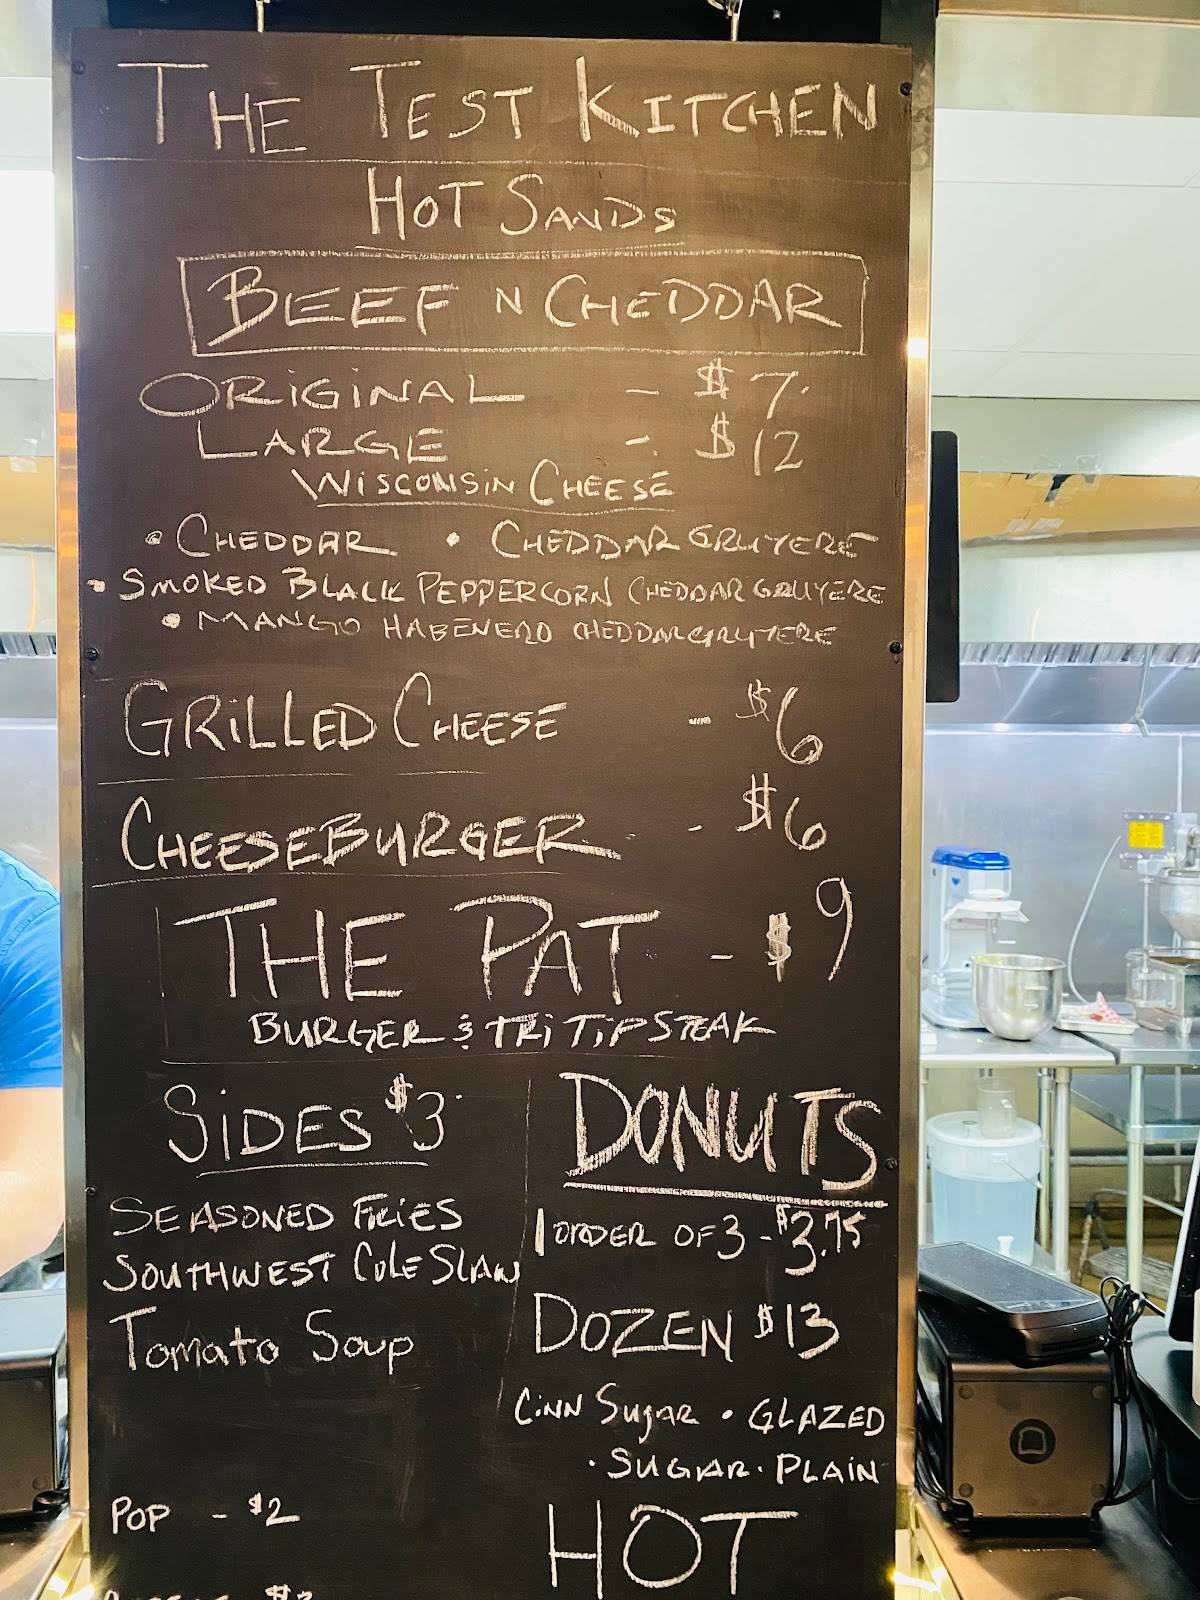 THE TEST KITCHEN
HOT SANDS
BEEF N CHEDDAR
ORIGINAL - $7.
LARGE - $12
WISCONSIN CHEESE
• CHEDDAR • CHEDDAR GRUYERE
• SMOKED BLACK PEPPERCORN CHEDDAR GRUYERE
• MANGO HABENERO CHEDDAR GRUYERE
GRILLED CHEESE - $6
CHEESEBURGER - - $6
THE PAT - $9
BURGER & TRI TIP STEAK
SIDES $3.
SEASONED FRIES
SOUTHWEST COLE SLAW
TOMATO SOUP
POP - $2
DONUTS
1 ORDER OF 3 - $3.75
DOZEN $13
CINN SUGAR • GLAZED
• SUGAR • PLAIN
HOT